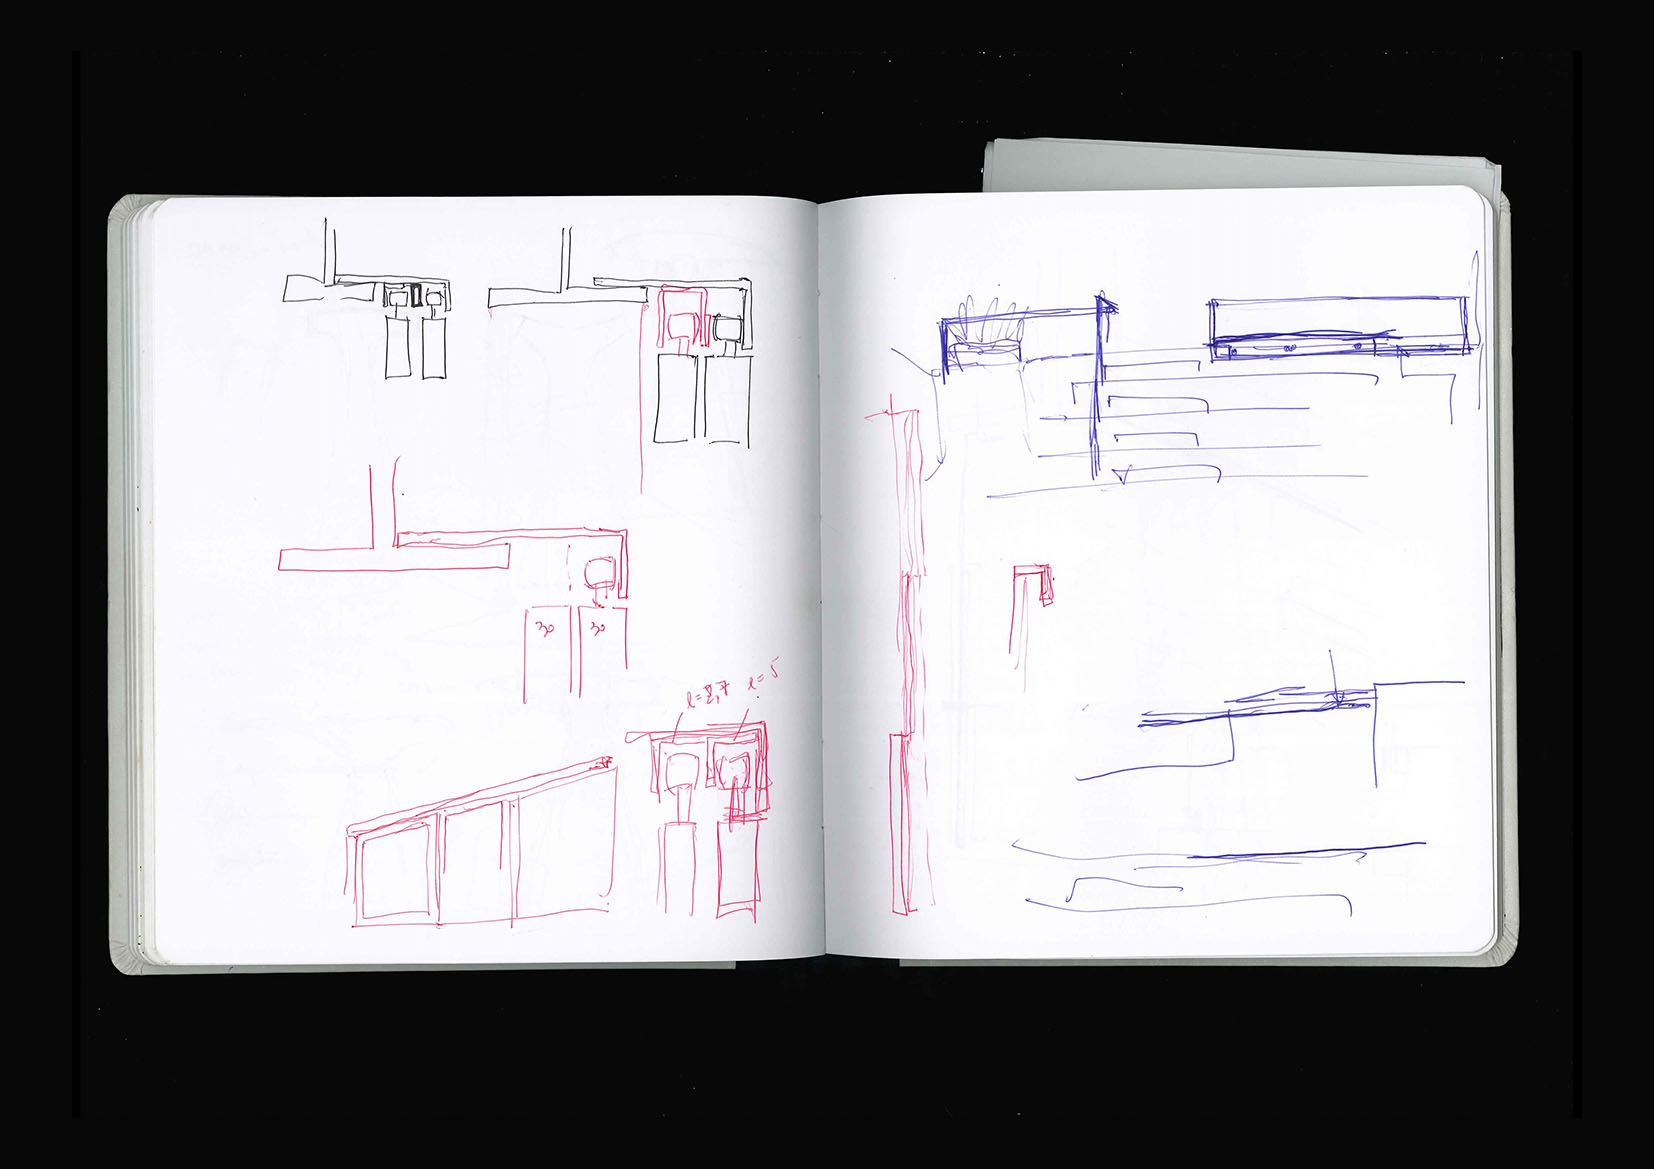 30 30
l=2,7 l=5